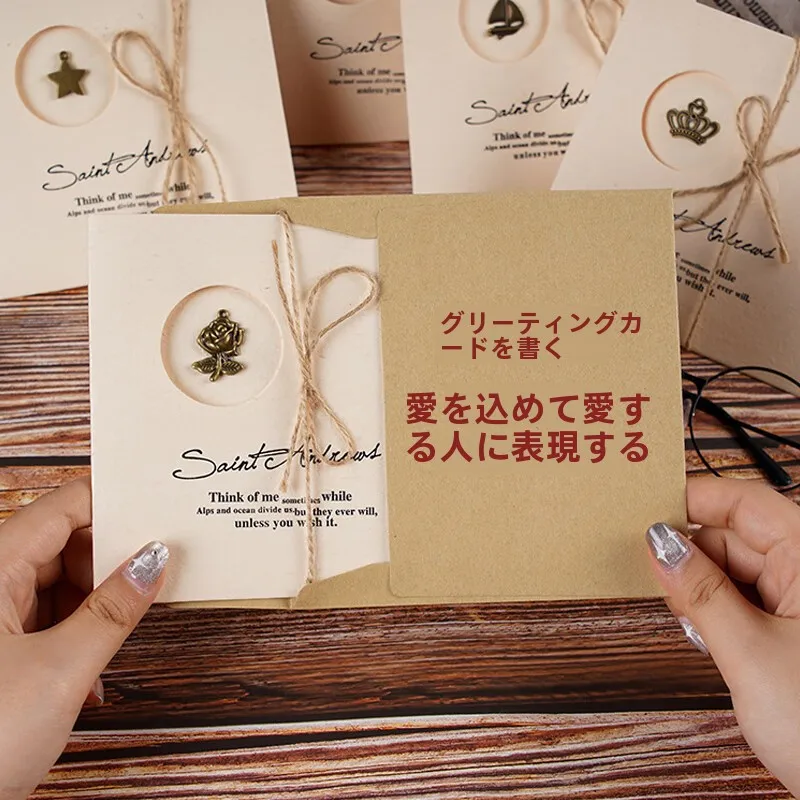 Saint Andrews
Think of me sometimes while
unless you
Saint Andrews
Think of me sometimes while
Alps and ocean divide us, but they ever will,
unless you wish
Saint Andrews
Think of me sometimes while
Alps and ocean divide us, but they ever will,
Andrews
while
they ever will,
グリーティングカ
ードを書く
愛を込めて愛す
る人に表現する
Saint Andrews
Think of me sometimes while
Alps and ocean divide us, but they ever will,
unless you wish it.